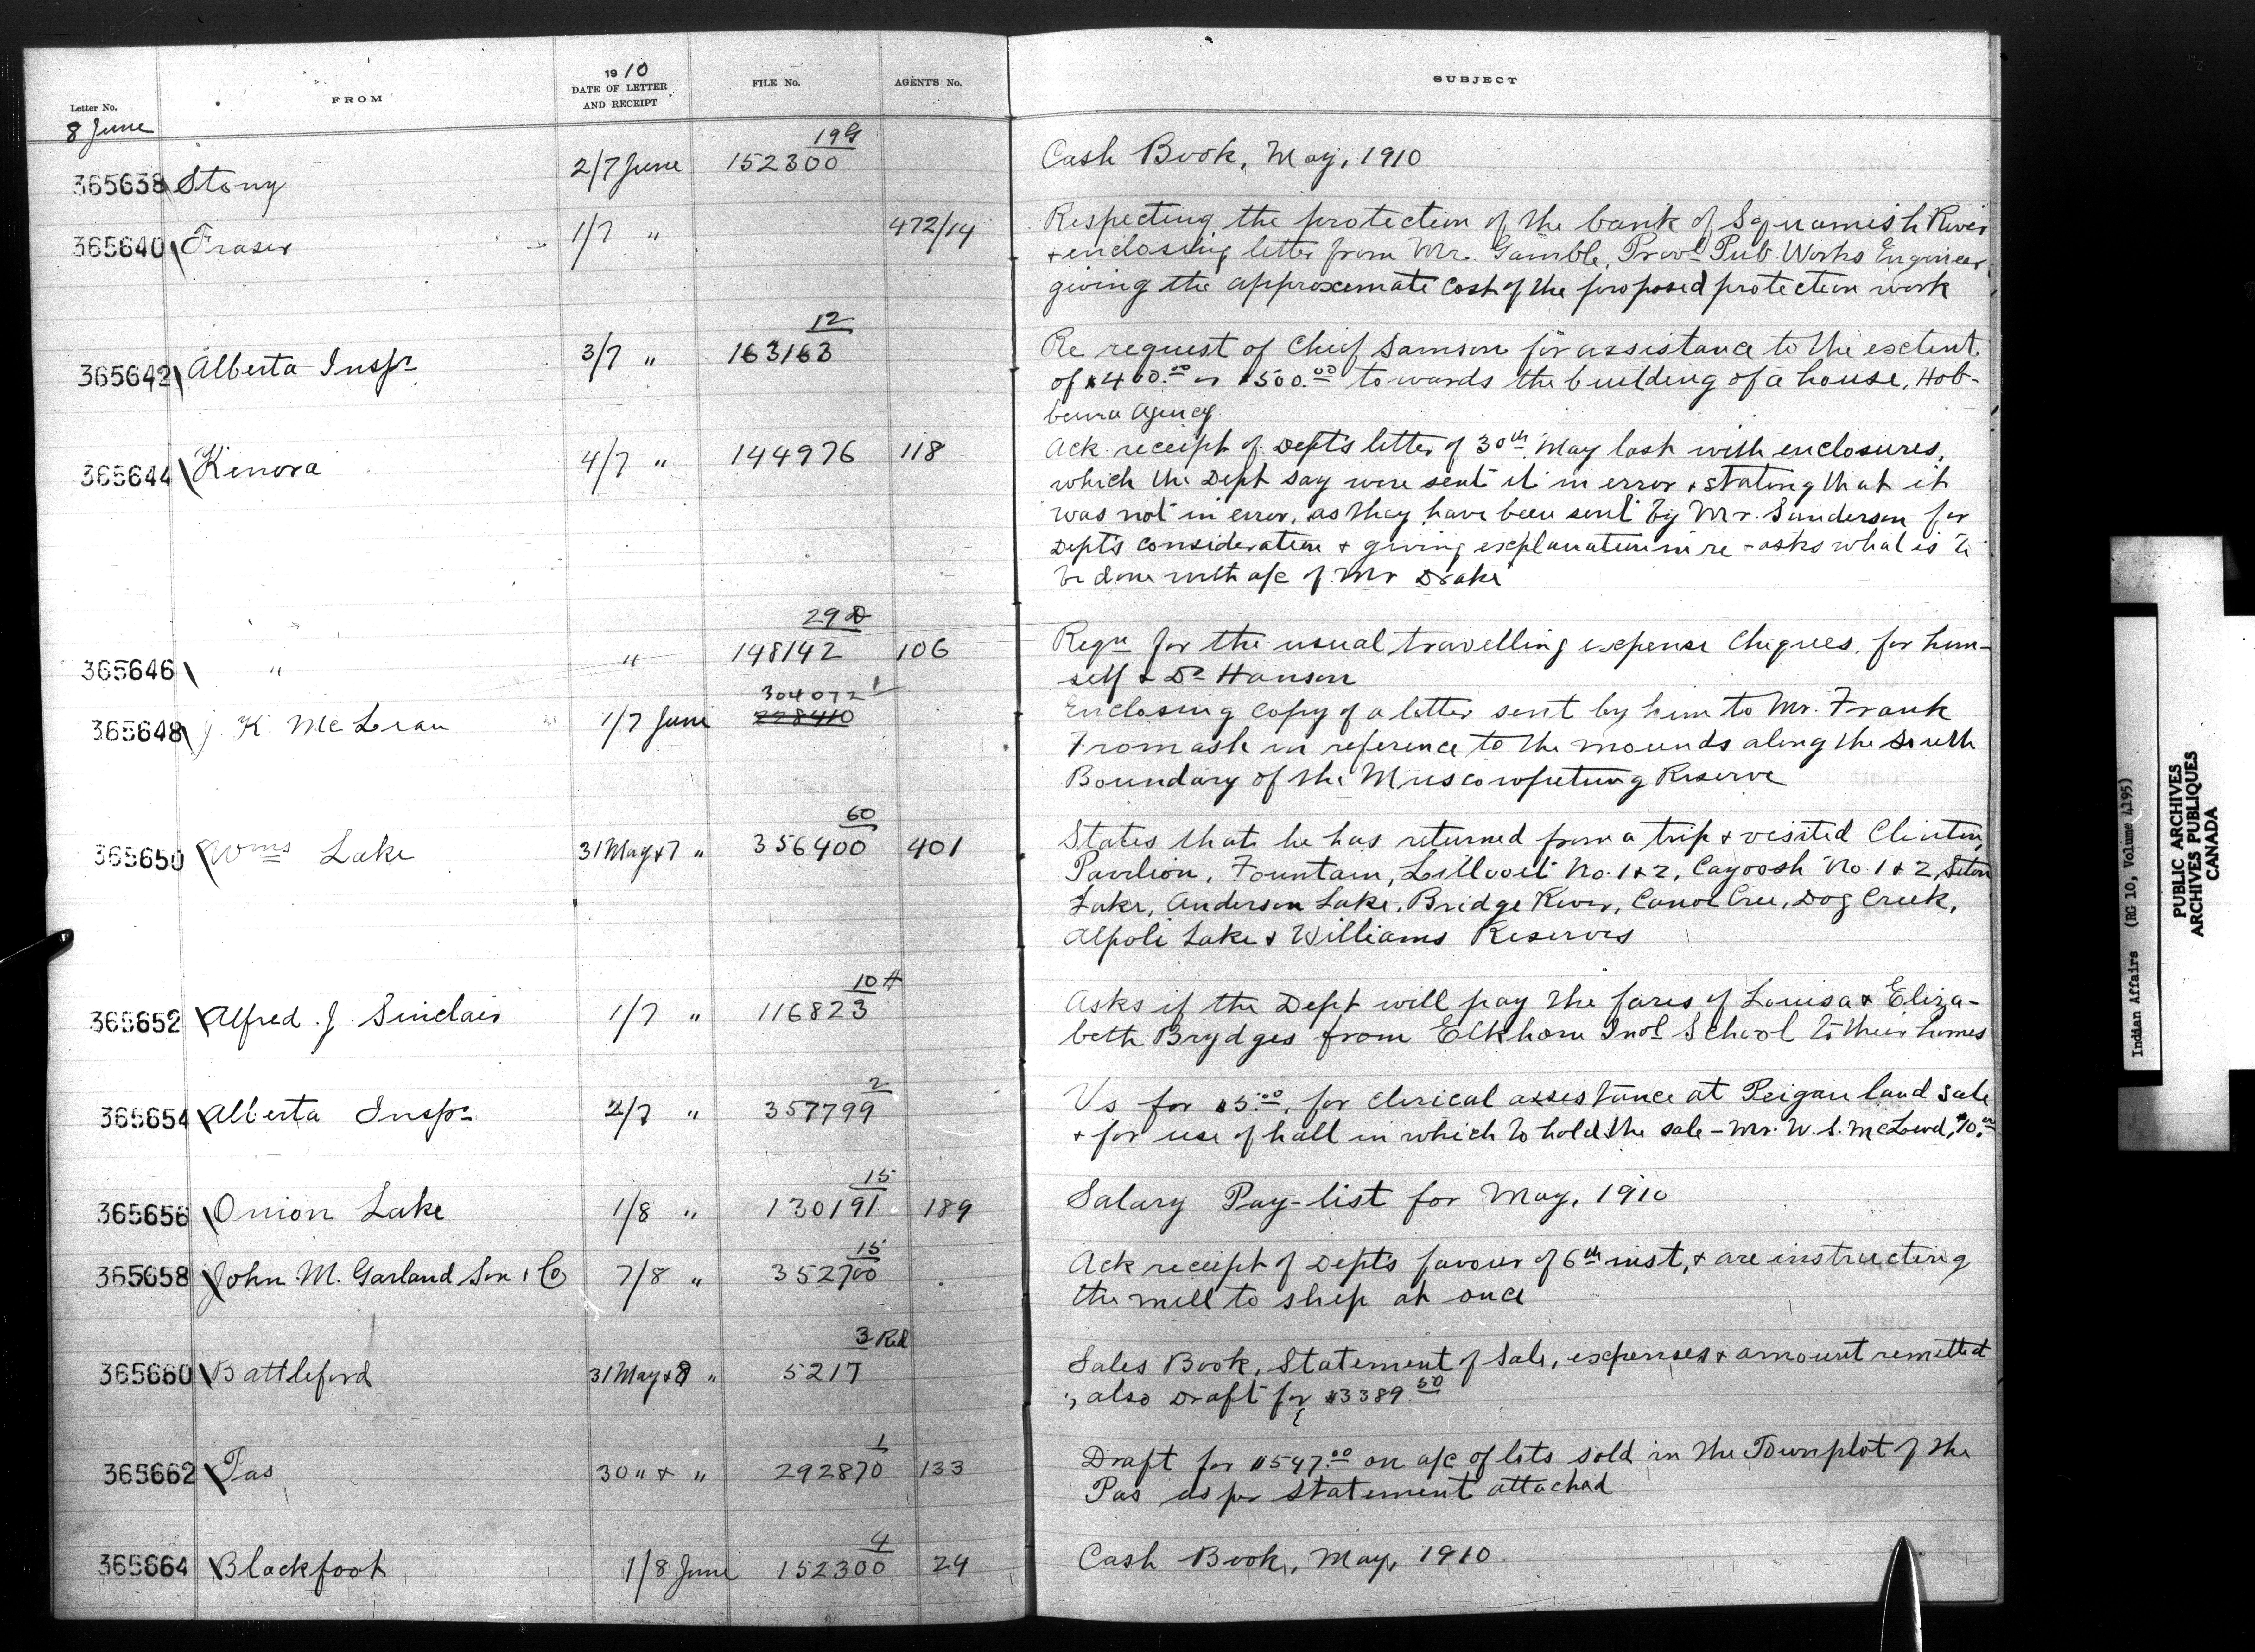 Letter No. FROM 1910 DATE OF LETTER AND RECEIPT FILE No. AGENT'S No. SUBJECT
8 June
365638 Stony 2/7 June 152300 19G Cash Book, May, 1910
365640 Fraser 1/7 " 472/14 Respecting the protection of the bank of Squamish River
+ enclosing letter from Mr. Gamble, Provl Pub. Works Engineer,
giving the approximate cost of the proposed protection work
365642 Alberta Inspr 3/7 " 163163 12 Re request of Chief Samson for assistance to the extent
of $400.00 or $500.00 towards the building of a house, Hob-
bema Agency.
365644 Kenora 4/7 " 144976 118 Ack. receipt of Dept's letter of 30th May last with enclosures,
which the Dept say were sent it in error + stating that it
was not in error, as they have been sent by Mr. Sanderson for
Dept's consideration + giving explanation in re - asks what is to
be done with a/c of Mr Drake
365646 " " 148142 29D 106 Reqn for the usual travelling expense cheques, for him-
self & Dr Hanson
365648 J. K. McLean 1/7 June 304072 1 228410 Enclosing copy of a letter sent by him to Mr. Frank
Fromash in reference to the mounds along the South
Boundary of the Muscowpetung Reserve
365650 Wms Lake 31 May & 7 " 356400 60 401 States that he has returned from a trip + visited Clinton,
Pavilion, Fountain, Lillooet No. 1 + 2, Cayoosh No. 1 & 2, Seton
Lake, Anderson Lake, Bridge River, Canoe Cree, Dog Creek,
Alpoli Lake & Williams Reserves
365652 Alfred J. Sinclair 1/7 " 116823 10H Asks if the Dept will pay the fares of Louisa & Eliza-
beth Brydges from Elkhorn Indl School to their homes
365654 Alberta Inspr 2/7 " 357799 2 Vs for $5.00, for clerical assistance at Peigan land sale
+ for use of hall in which to hold the sale - Mr. W. S. McLeod, $10.00
365656 Onion Lake 1/8 " 130191 15 189 Salary Pay-list for May, 1910
365658 John M. Garland Son & Co 7/8 " 352700 15 Ack receipt of Dept's favour of 6th inst, + are instructing
the mill to ship at once
365660 Battleford 31 May & 8 " 5217 3 Red Sales Book, Statement of Sale, expenses & amount remitted
, also Draft for $3389.50
365662 Pas 30 " & " 292870 1 133 Draft for $547.00 on a/c of lots sold in the Townplot of the
Pas as per statement attached
365664 Blackfoot 1/8 June 152300 4 24 Cash Book, May, 1910
Indian Affairs (RG 10, Volume 4195)
PUBLIC ARCHIVES
ARCHIVES PUBLIQUES
CANADA